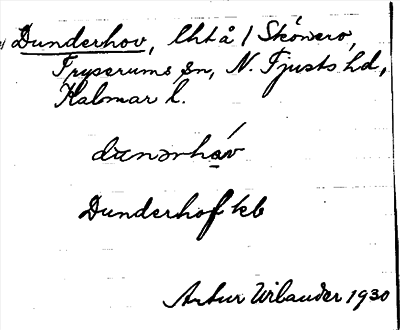 Dunderhov, lht å / Skönero,
Fryserums sn, N. Tjusts hd,
Kalmar l.
dunərháv
Dunderhof kb
Artur Wilander 1930